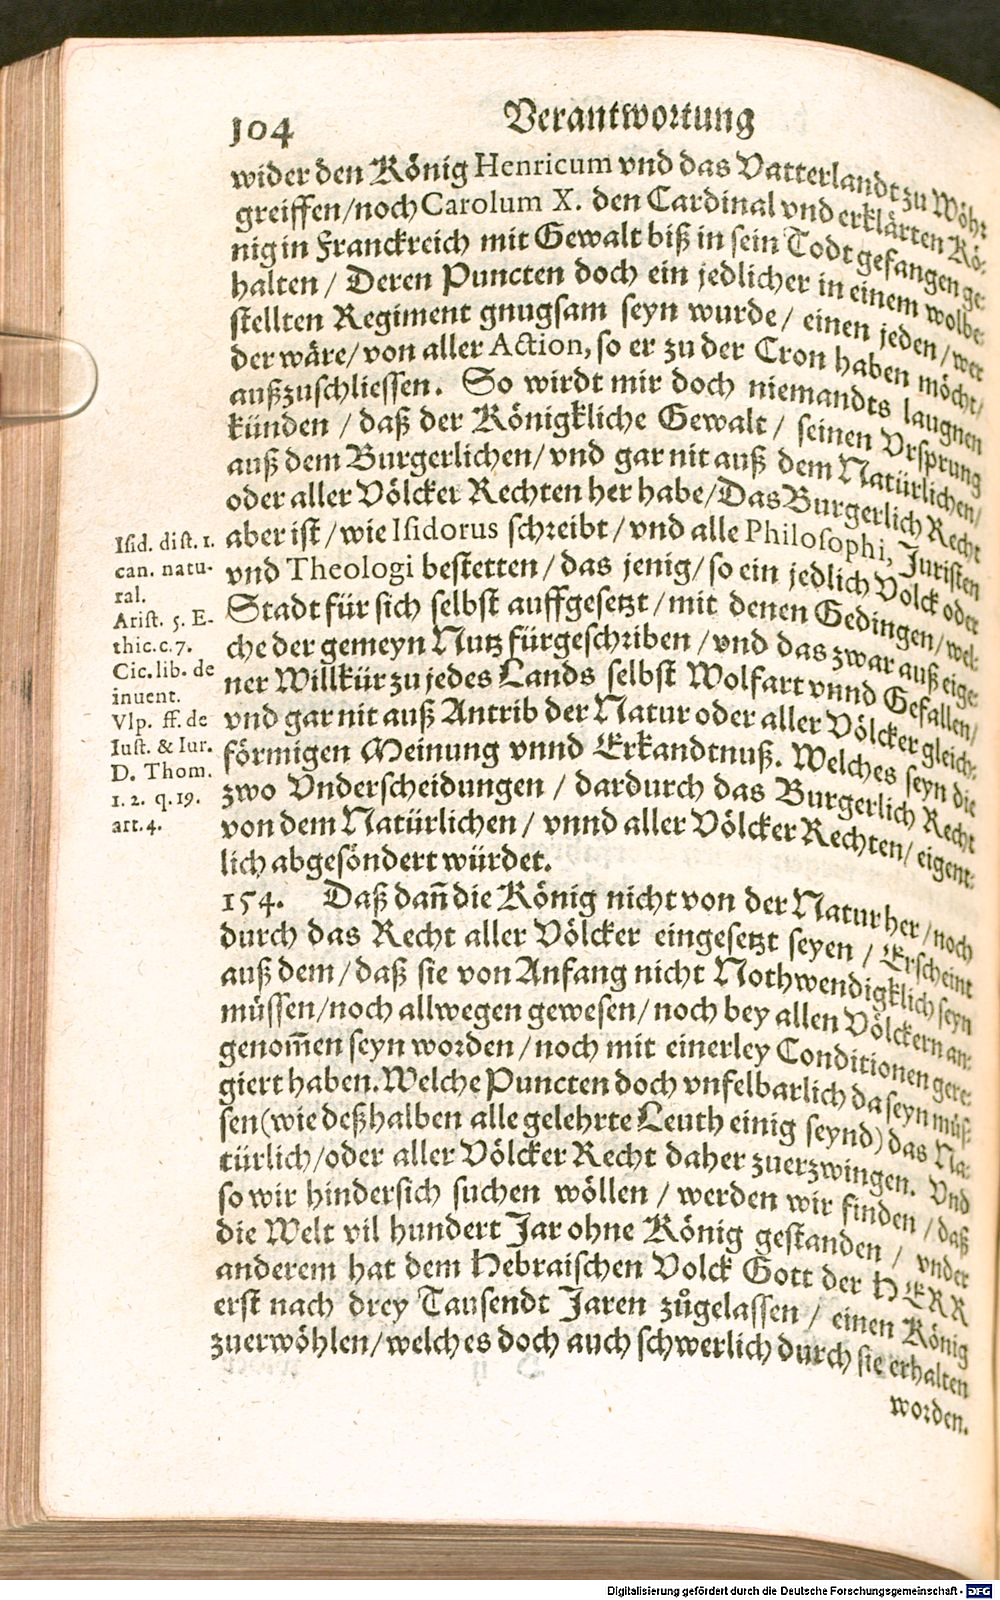 104 Verantwortung
wider den König Henricum vnd das Vatterlandt zu Wöhr
greiffen/noch Carolum X. den Cardinal vnd erklärten Kö-
nig in Franckreich mit Gewalt biß in sein Todt gefangen ge-
halten / Deren Puncten doch ein jedlicher in einem wolbe-
stellten Regiment gnugsam seyn wurde / einen jeden / wer
der wäre/von aller Action, so er zu der Cron haben möcht/
außzuschliessen. So wirdt mir doch niemandts laugnen
künden / daß der Königkliche Gewalt / seinen Vrsprung
auß dem Burgerlichen/ vnd gar nit auß dem Natürlichen/
oder aller Völcker Rechten her habe/Das Burgerlich Recht
aber ist / wie Isidorus schreibt / vnd alle Philosophi, Juristen
vnd Theologi bestetten / das jenig/ so ein jedlich Volck oder
Stadt für sich selbst auffgesetzt / mit denen Gedingen/ wel-
che der gemeyn Nutz fürgeschriben / vnd das zwar auß eige-
ner Willkür zu jedes Lands selbst Wolfart vnnd Gefallen/
vnd gar nit auß Antrib der Natur oder aller Völcker gleich-
förmigen Meinung vnnd Erkandtnuß. Welches seyn die
zwo Vnderscheidungen / dardurch das Burgerlich Recht
von dem Natürlichen / vnnd aller Völcker Rechten/ eigent-
lich abgesöndert würdet.
Isid. dist. 1.
can. natu-
ral.
Arist. 5. E-
thic. c. 7.
Cic. lib. de
inuent.
Vlp. ff. de
Iust. & Iur.
D. Thom.
1. 2. q. 19.
art. 4.
154. Daß dañ die König nicht von der Natur her / noch
durch das Recht aller Völcker eingesetzt seyen / Erscheint
auß dem / daß sie von Anfang nicht Nothwendigklich seyn
müssen/noch allwegen gewesen/ noch bey allen Völckern an-
genom̃en seyn worden / noch mit einerley Conditionen gere-
giert haben. Welche Puncten doch vnfelbarlich da seyn müs-
sen (wie deßhalben alle gelehrte Leuth einig seynd) das Na-
türlich/oder aller Völcker Recht daher zuerzwingen. Vnd
so wir hindersich suchen wöllen / werden wir finden / daß
die Welt vil hundert Jar ohne König gestanden / vnder
anderem hat dem Hebraischen Volck Gott der HERR
erst nach drey Tausendt Jaren zůgelassen / einen König
zuerwöhlen/ welches doch auch schwerlich durch sie erhalten
worden.
Digitalisierung gefördert durch die Deutsche Forschungsgemeinschaft - DFG